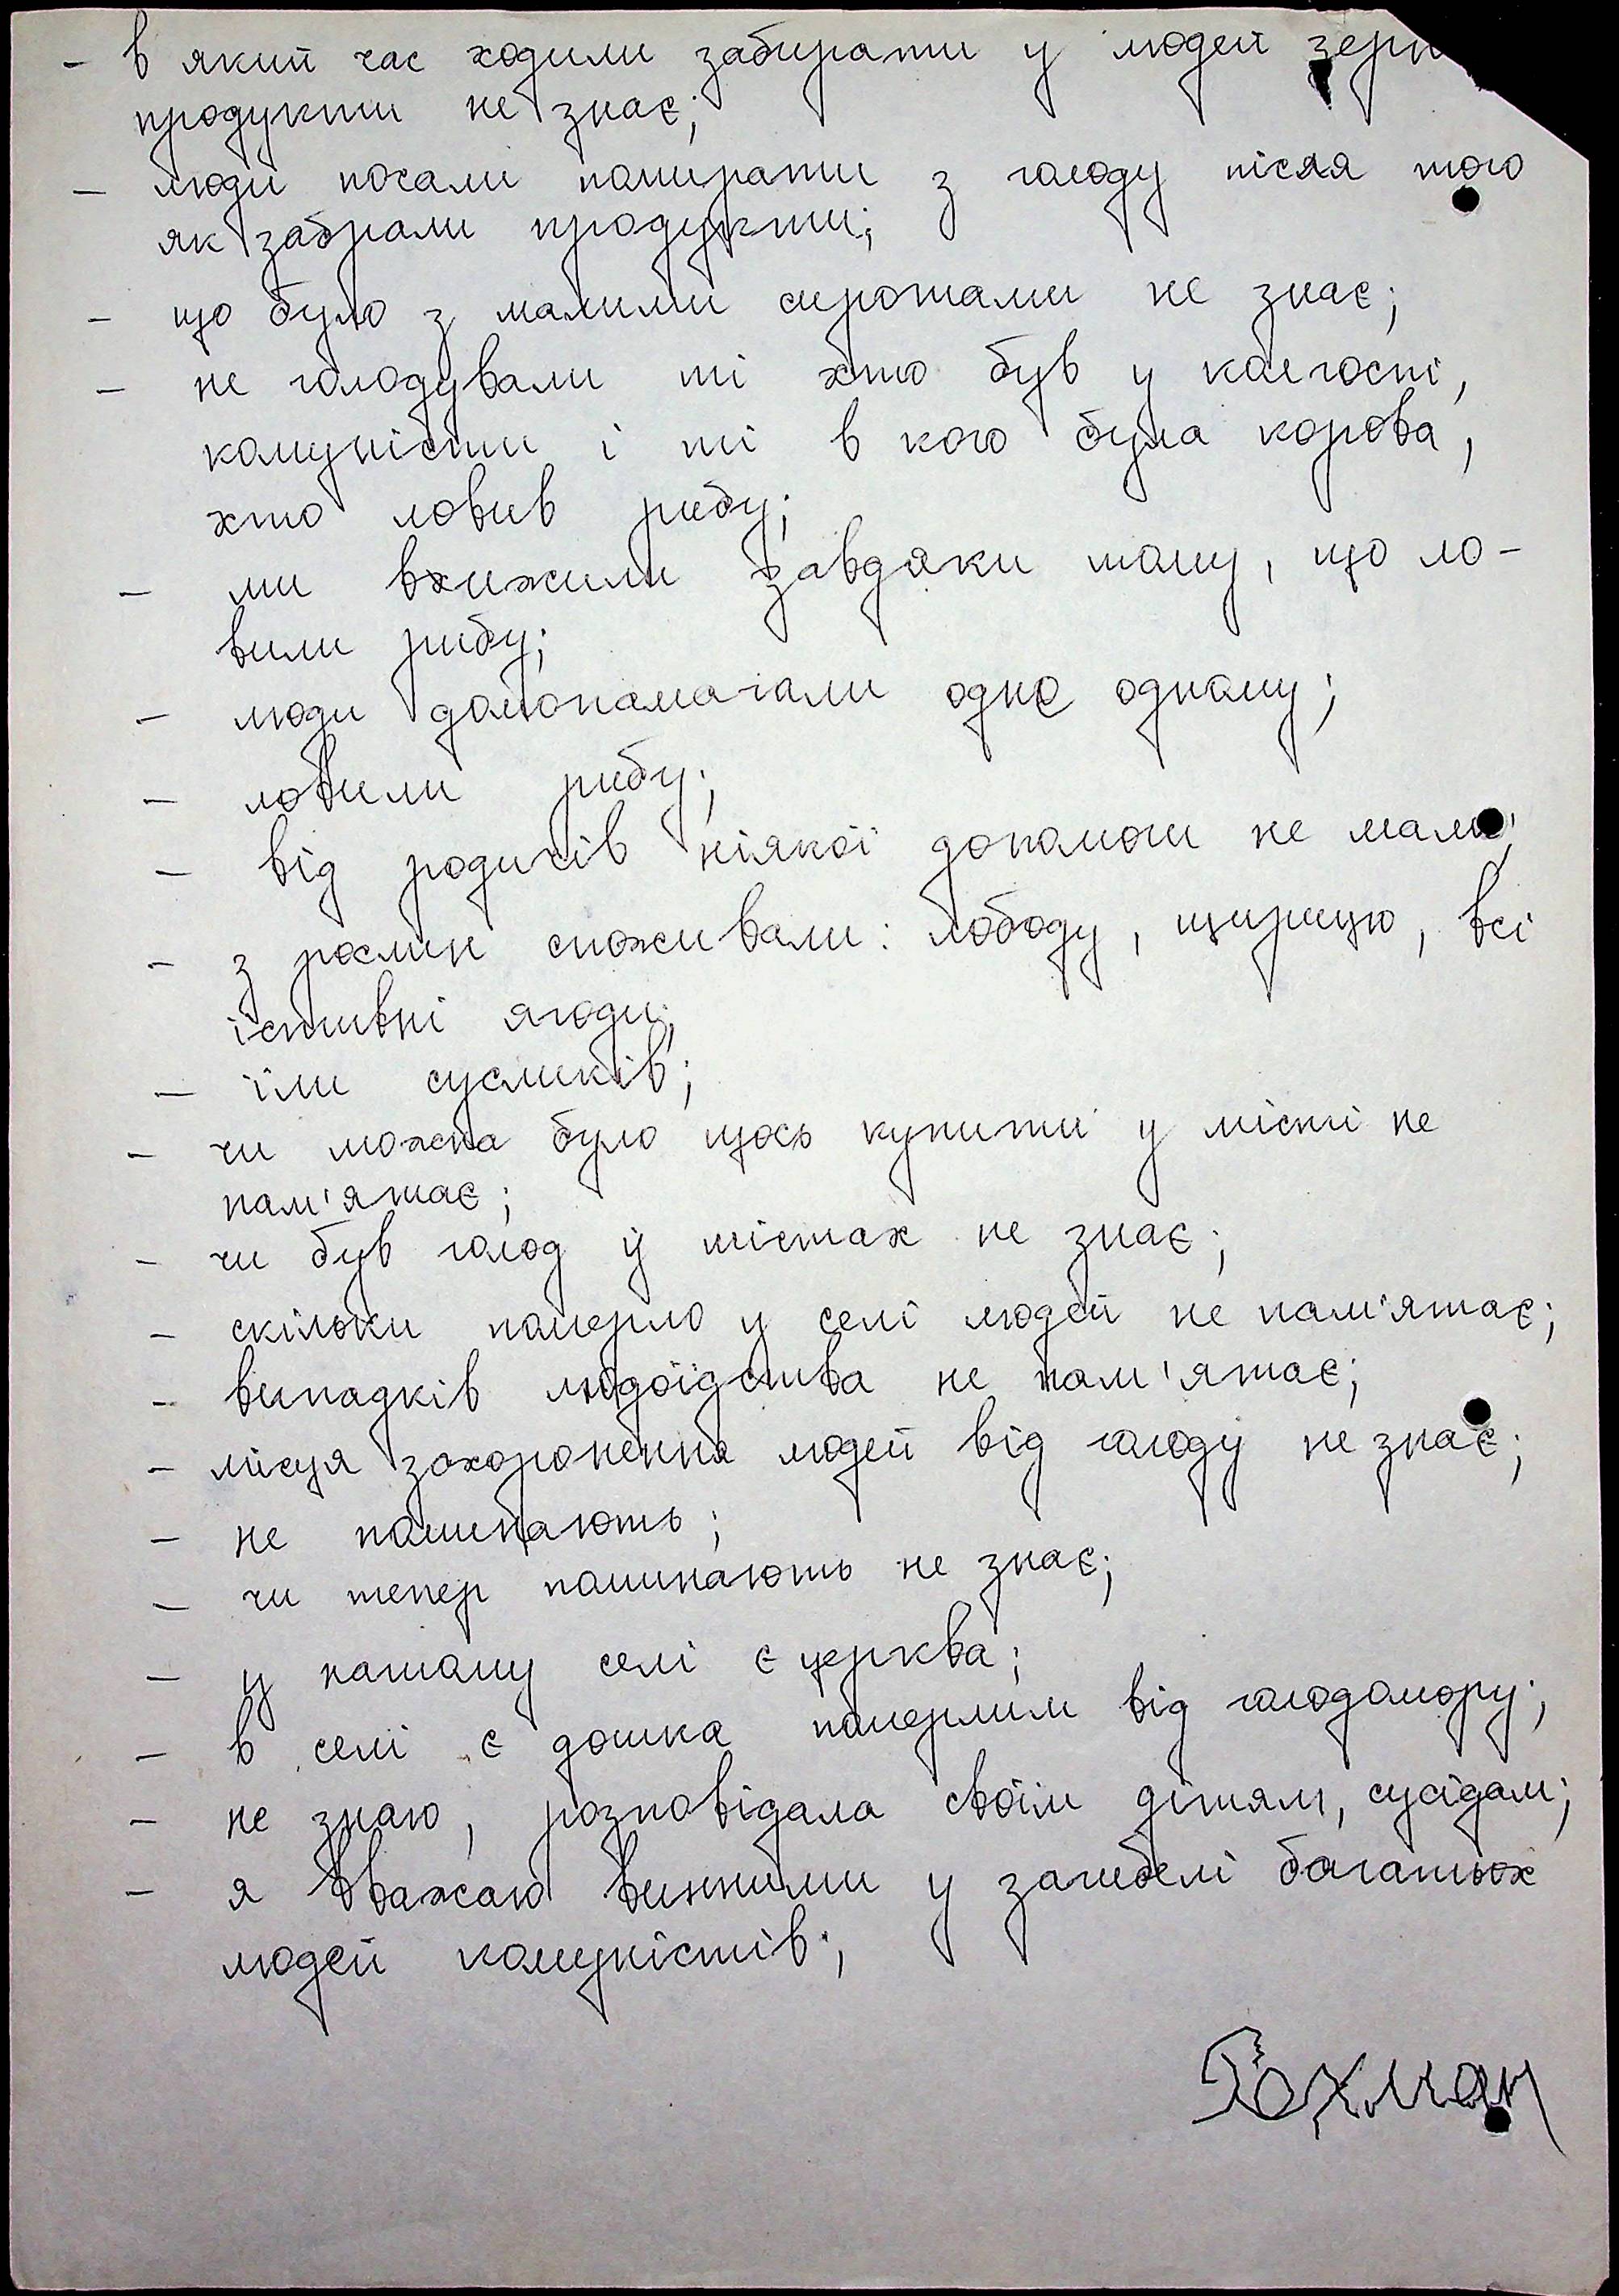 - в який час ходили забирати у людей зерн
продукти не знає;
- люди почали помирати з голоду після того
як забрали продукти;
- що було з малими сиротами не знає;
- не голодували ті хто був у колгоспі,
комуністи і ті в кого була корова,
хто ловив рибу;
- ми вижили завдяки тому, що ло-
вили рибу;
- люди допомагали одне одному;
- ловили рибу;
- від родичів ніякої допомоги не мали;
- з рослин споживали: лободу, щирицю, всі
їстивні ягоди;
- їли сусликів;
- чи можна було щось купити у місті не
пам'ятає;
- чи був голод у містах не знає;
- скільки померло у селі людей не пам'ятає;
- випадків людоїдства не пам'ятає;
- місця захоронення людей від голоду не знає;
- не поминають;
- чи тепер поминають не знає;
- у нашому селі є церква;
- в селі є дошка померлим від голодомору;
- не знаю, розповідала своїм дітям, сусідам;
- я вважаю винними у загибелі багатьох
людей комуністів;